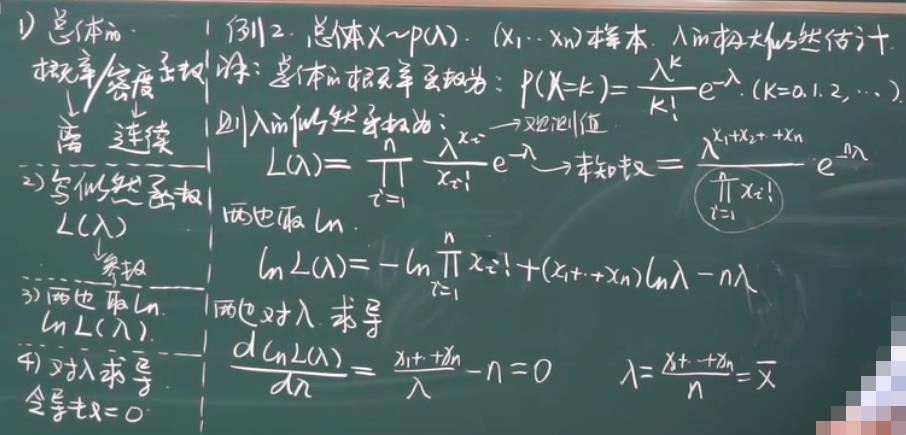 1) 总体的
概率/密度函数
↓ ↓
离 连续
2) 写似然函数
L(λ)
↓
参数
3) 两边取ln.
ln L(λ).
4) 对λ求导
令导数=0.
例2. 总体X~P(λ). (x₁...xₙ)样本. λ的极大似然估计.
解: 总体的概率函数为: P(X=K)= λ^K/K! e^(-λ). (K=0.1.2,...).
则λ的似然函数为: →观测值
L(λ)= ∏_{i=1}^{n} λ^(x_i)/x_i! e^(-λ) →未知数 = λ^(x₁+x₂+..+xₙ)/∏_{i=1}^{n} x_i! e^(-nλ)
两边取ln.
ln L(λ)=-ln ∏_{i=1}^{n} x_i!+(x₁+..+xₙ)lnλ-nλ
两边对λ求导
d ln L(λ)/dλ = (x₁+..+xₙ)/λ -n=0 λ=(x₁+..+xₙ)/n = x̄